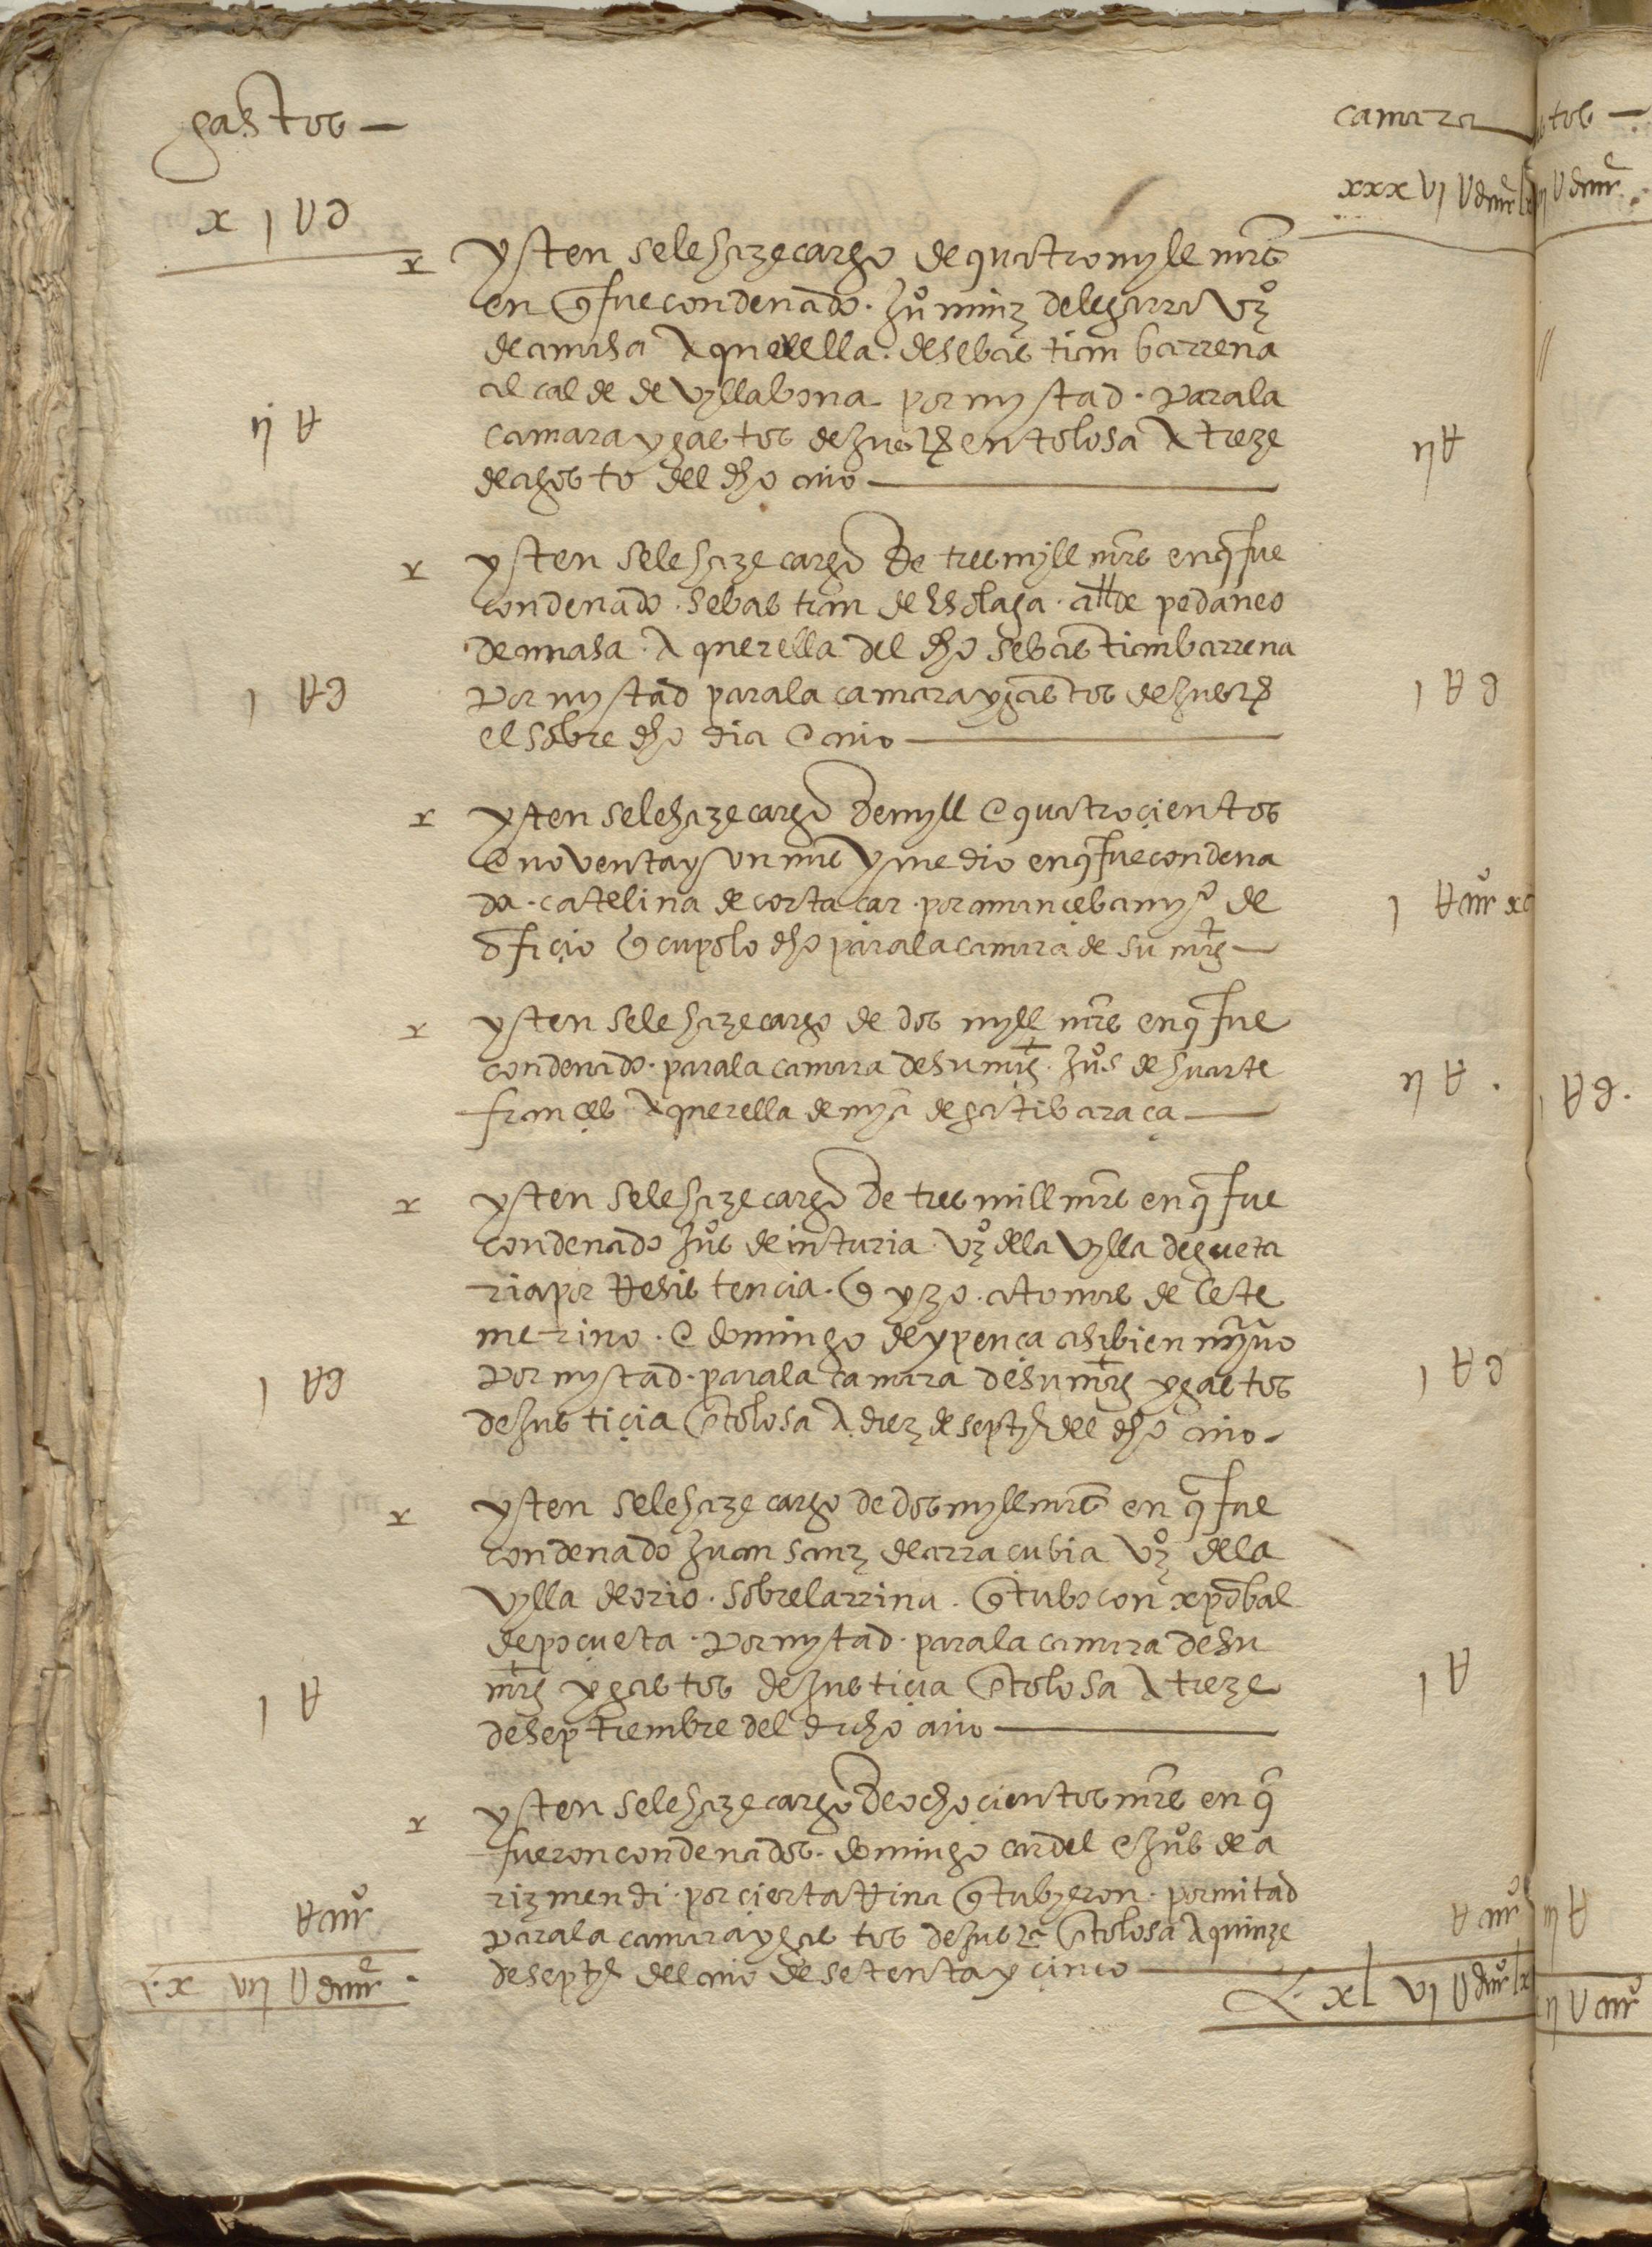 gastos
camara
x j U d
xxx vj U
ysten se le haze cargo de quatro myll mrs
en q fue condenado. Juº minz de legarra vzº
de amasa A querella. de sebastian barrena
alcalde de vyllabona por mystad. Para la
ij U
camara y gastos de Jusª en tolosa A treze
ij U
de agosto del dho año
ysten se le haze cargo De tres myll mrs en q fue
condenado. sebastian de Esolaga. allde pedaneo
de amasa. A querella del dho sebastian barrena
j U d
Por mystad para la camara y gastos de Jusª
j U d
el sobre dho dia E año
ysten se le haze cargo De myll E quatroçientos
E noventa y un mrs y medio en q fue condena
da. catelina de cortaçar. por amançebamyº de
j U
ofiçio q cupo lo dho para la camara de su mag
ysten se le haze cargo de dos myll mrs en q fue
condenado. para la camara de su mag. Juºs de huarte
ij U
françes A querella de mya de gatibaraça
U d
ysten se le haze cargo De tres mill mrs en q fue
condenado Juºs de inturia. vzº de la vylla de gueta
ria por Resistencia. q yzo. a tomas de leste
merino. E domingo de ypença asi bien myno
j U d
Por mystad. para la camara de su mag y gastos
j U d
de Justiçia En tolosa A diez de septe del dho año
ysten se le haze cargo de dos myll mrs en q fue
condenado Juan sanz de arraçubia vzº de la
vylla de orio. sobre la rrina. q tubo con xpobal
de poçueta. Por mystad. para la camara de su
j U
mag y gastos de Justiçia En tolosa A treze
j U
de septiembre del dicho año
ysten se le haze cargo De ochoçientos mrs en q
fueron condenados. domingo cardel E Juºs de a
rizmendi. por çierta Rina q tubyeron. por mitad
para la camara y gastos de Jusª En tolosa A quinze
de septe del año de setenta y çinco
x vij U
xl vj U